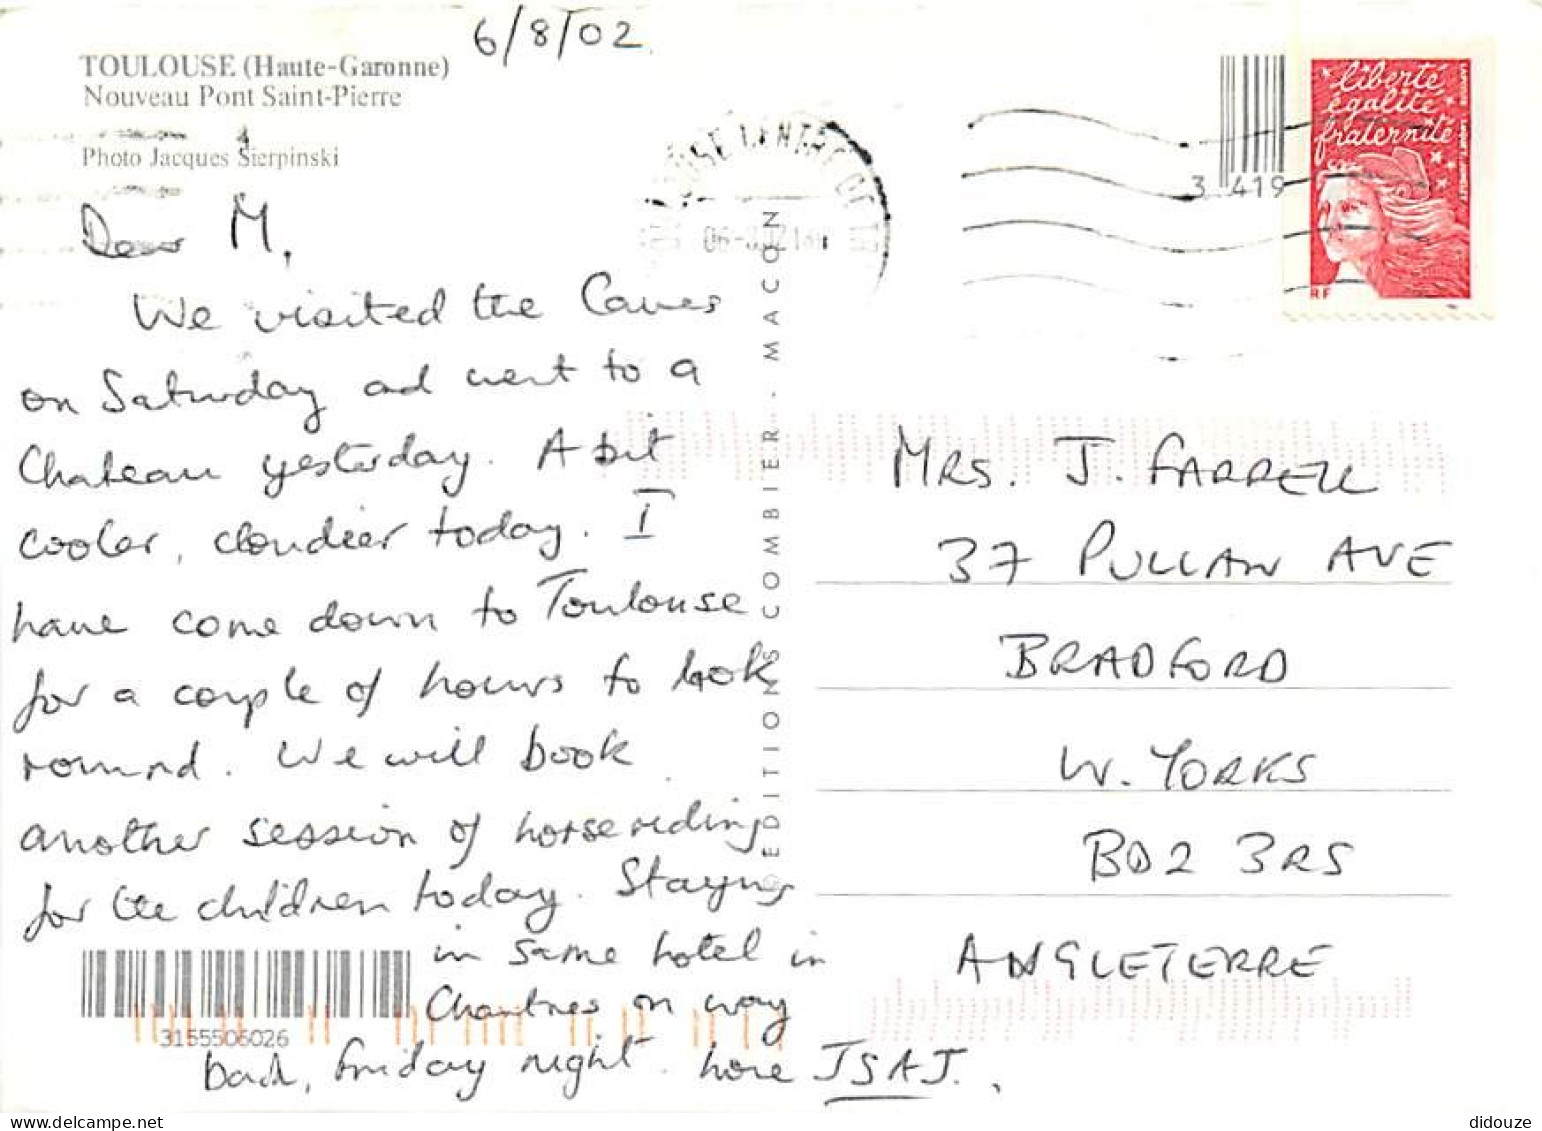 6/8/02
TOULOUSE (Haute-Garonne)
Nouveau Pont Saint-Pierre
Photo Jacques Sierpinski
Dear M,
We visited the Caves
on Saturday and went to a
Chateau yesterday. A bit
cooler, cloudier today. I
have come down to Toulouse
for a couple of hours to look
round. We will book
another session of horseriding
for the children today. Staying
in same hotel in
Chartres on way
back, Friday night. Love JSAJ.
3155506026
EDITIONS COMBIER - MACON
3 419
liberté
égalité
fraternité
RF
MRS. J. FARRELL
37 PULLAN AVE
BRADFORD
W. YORKS
BD2 3RS
ANGLETERRE
didouze